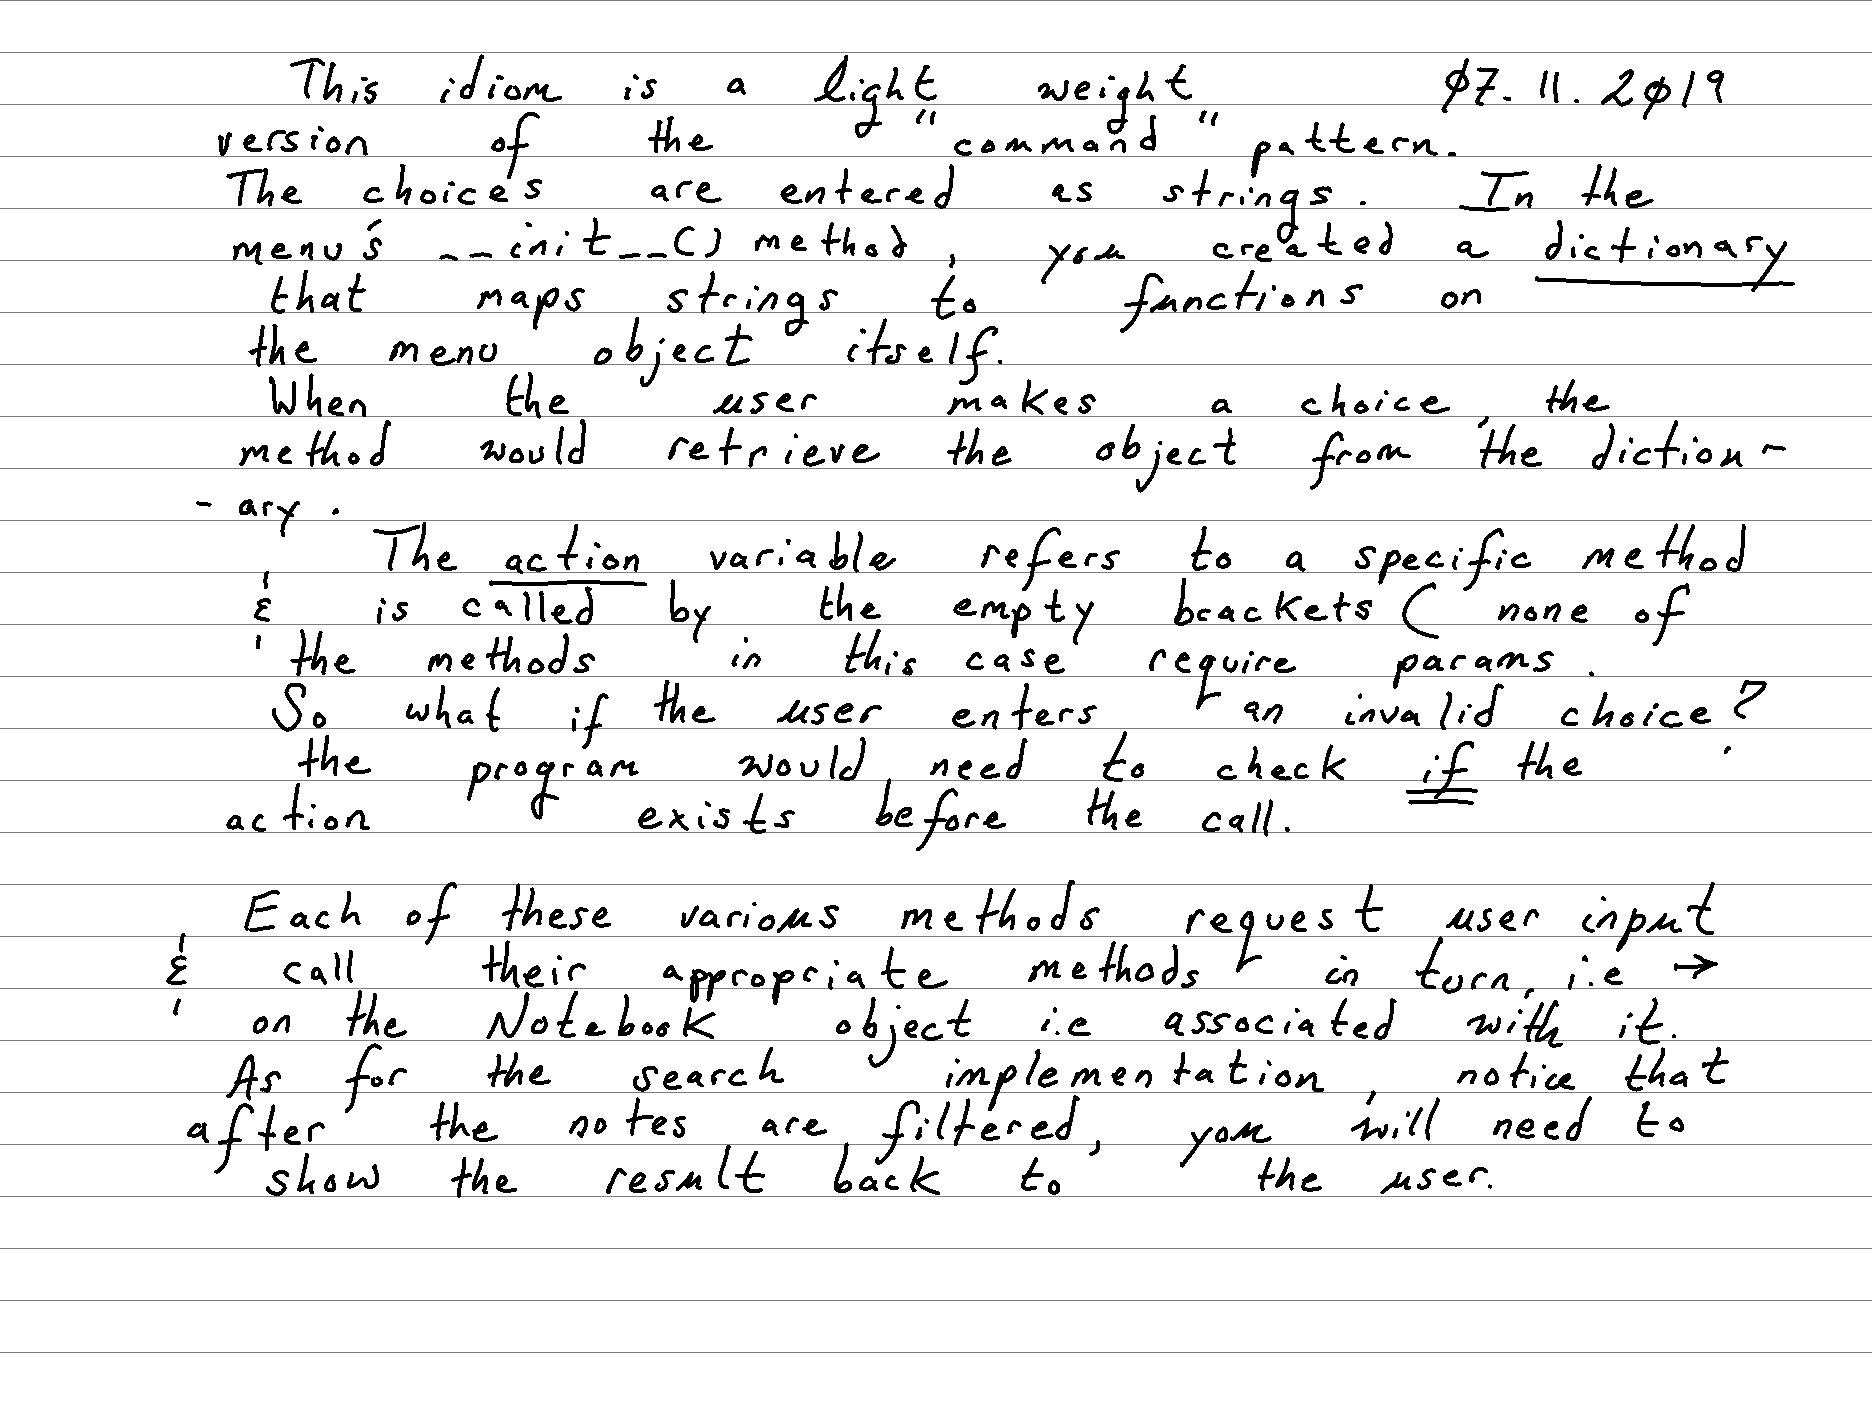 This idiom is a light weight 07.11.2019
version of the "command" pattern.
The choices are entered as strings. In the
menu's __init__() method, you created a dictionary
that maps strings to functions on
the menu object itself.
When the user makes a choice, the
method would retrieve the object from the diction-
- ary.
The action variable refers to a specific method
& is called by the empty brackets ( none of
the methods in this case require params.
So what if the user enters an invalid choice?
the program would need to check if the
action exists before the call.
Each of these various methods request user input
& call their appropriate methods in turn, i.e →
on the Notebook object i.e associated with it.
As for the search implementation, notice that
after the notes are filtered, you will need to
show the result back to the user.